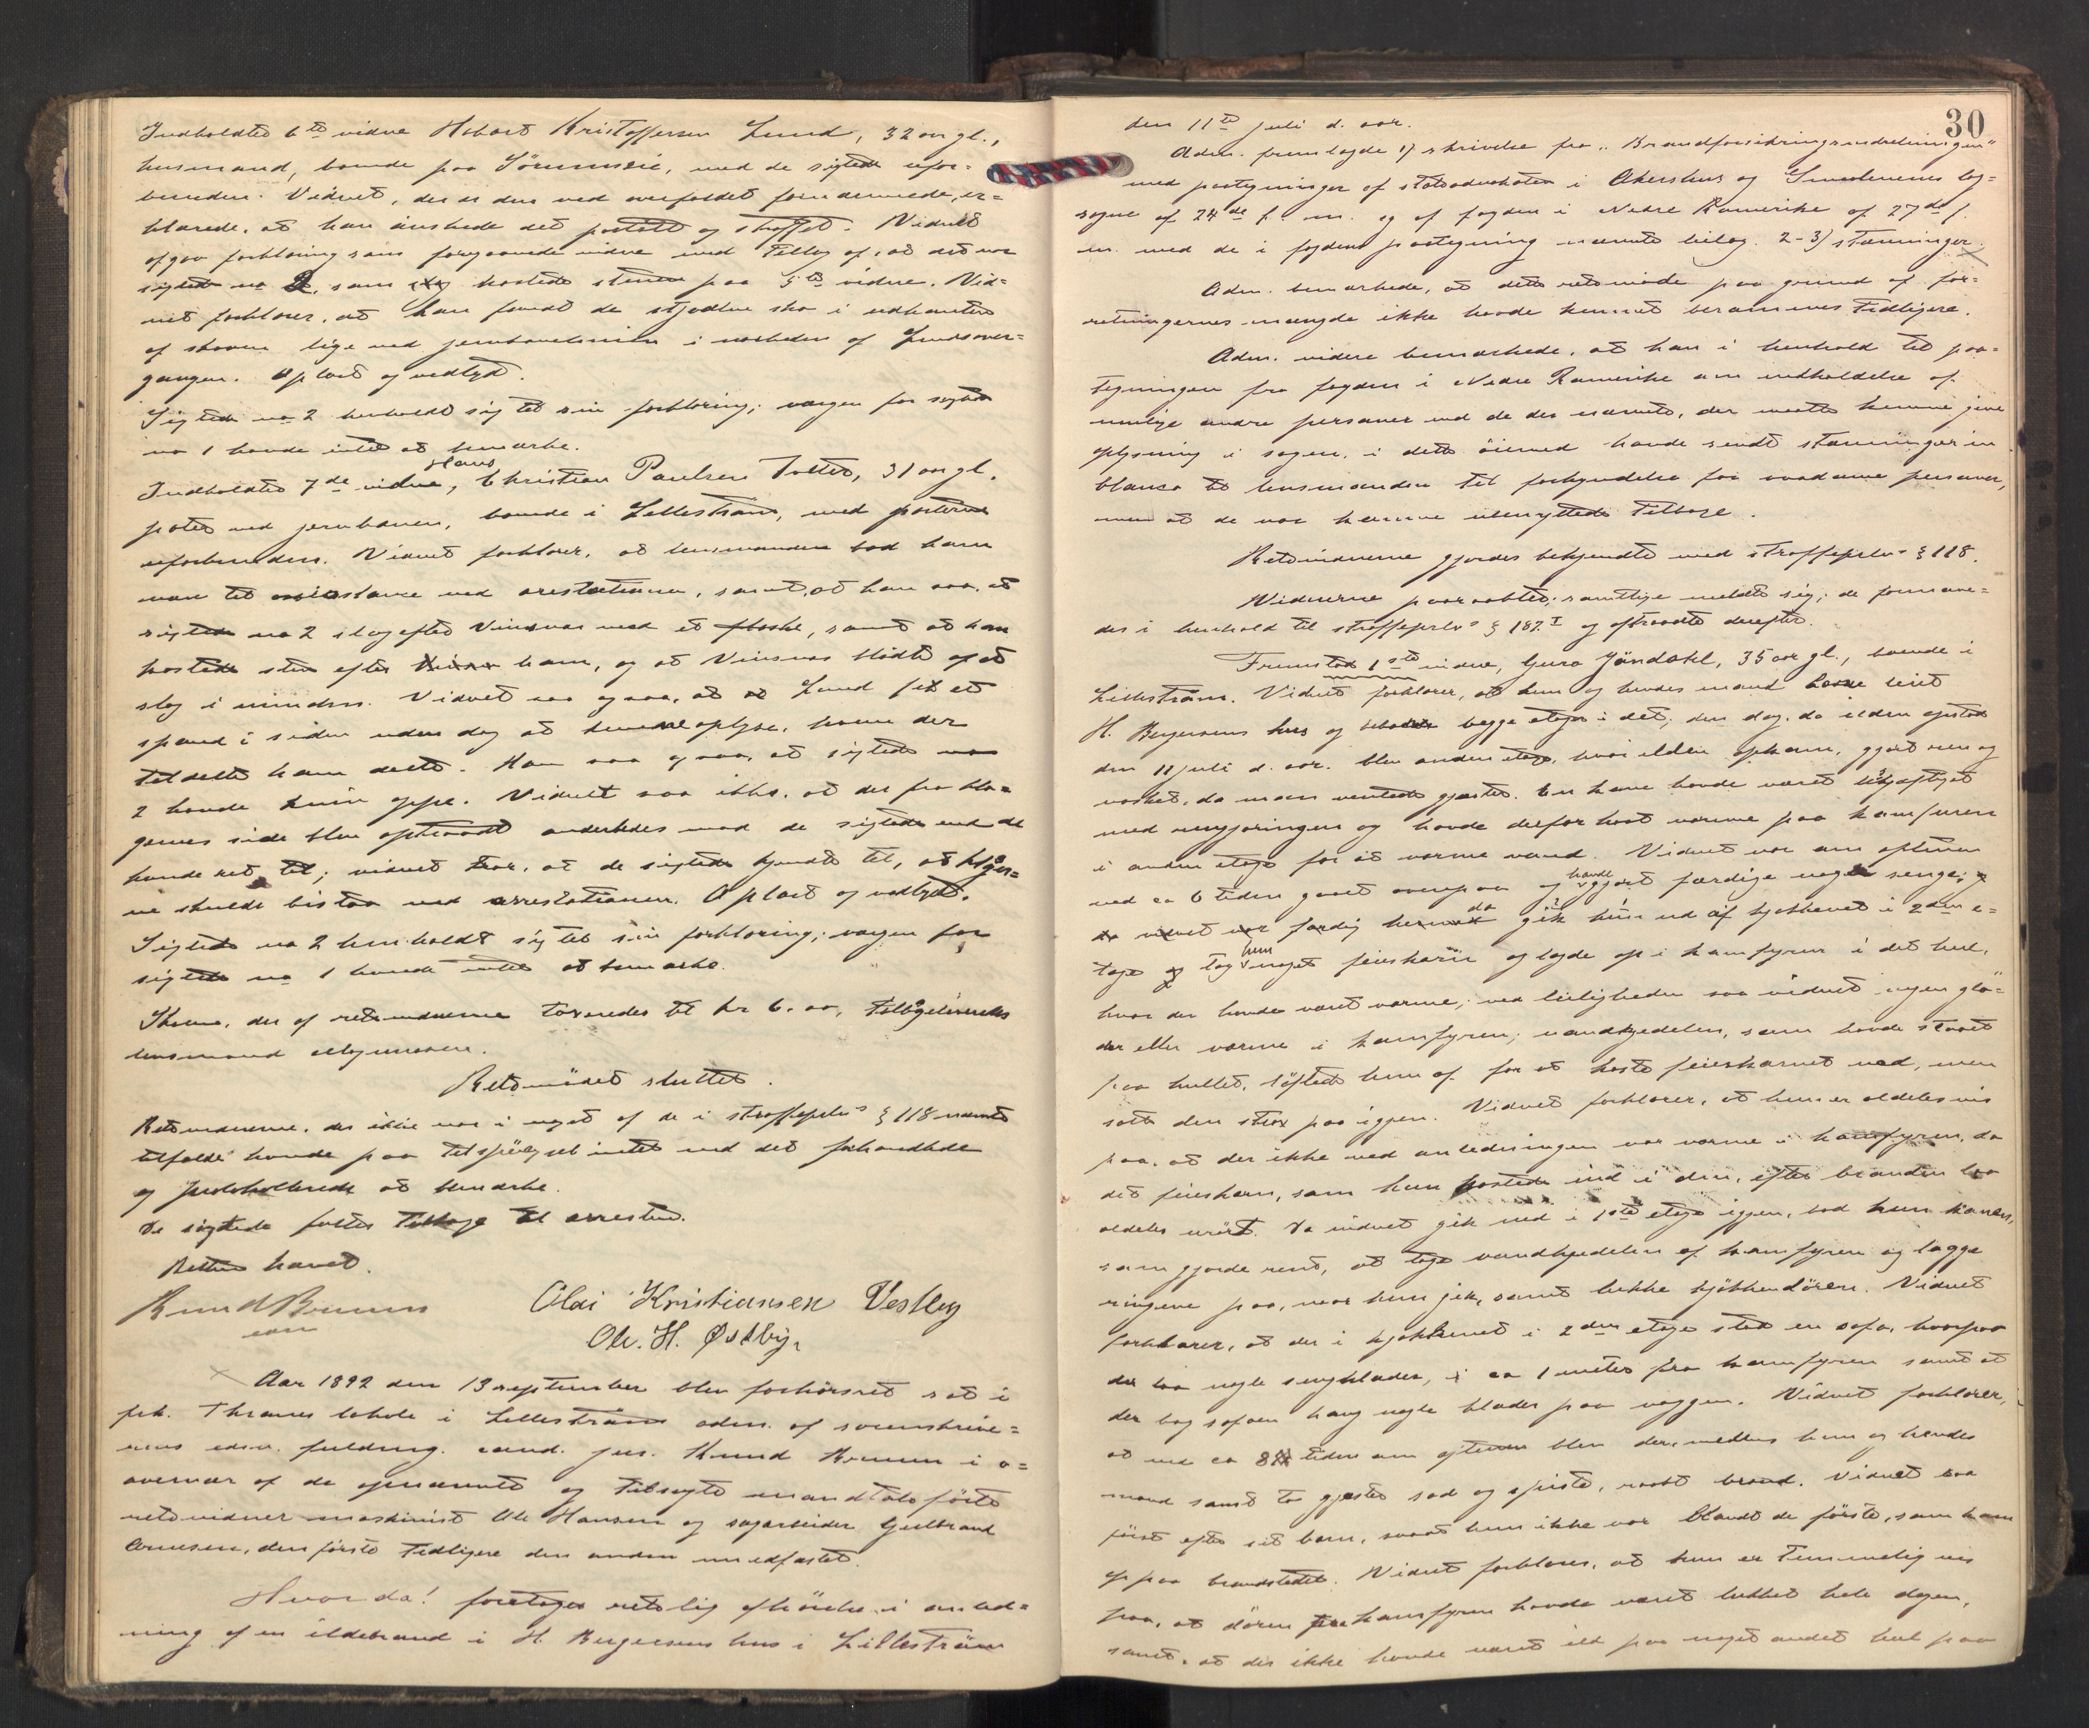 Indkaldtes 6te vidne Hobart Kristoffersen Lund, 32 aar gl.,
husmand, boende paa Sörumseie, med de sigtede ufor-
bunden. Vidnet, der er den ved overfaldet fornærmede, er-
klærede, at han önskede det paatalt og straffet. Vidnet
afgav forklaring som foregaaende vidne med tillæg af, at det var
sigtede no 2, som kastede stenen paa 5te vidne. Vid-
net forklarer, at han fandt de stjaalne sko i udkanten
af skoven lige ved jernbanelinien i nærheden af Lundsover-
gangen. Oplæst og vedtaget.
Sigtede no 2 henholdt sig til sin forklaring; værgen for sigtede
no 1 havde intet at bemærke.
Indkaldtes 7de vidne, Hans Christian Paulsen, 31 aar gl.
ved jernbanen, boende i Lilleström, med parterne
uforbunden. Vidnet forklarer, at lensmanden bad ham
være til assistance ved arrestationen, samt, at han saa, at
sigtede no 2 slog efter Vinsnes med et flaske, samt at han
kastede sten efter ham, og at Vinsnes blödte af et
slag i munden. Vidnet saa ogsaa, at Lund fik et
spænd i siden uden dog at kunne oplyse, hvem der
tildelte ham dette. Han saa ogsaa, at sigtede no
2 havde kniv oppe. Vidnet saa ikke, at der fra kla-
gernes side blev optraadt anderledes mod de sigtede end de
havde ret til; vidnet tror, at de sigtede kjendte til, at klager-
ne skulde bistaa ved arrestationen. Oplæst og vedtaget.
Sigtede no 2 henholdt sig til sin forklaring; værgen for
sigtede no 1 havde intet at bemærke.
Skoene, der af retsvidnerne taxeredes til kr 6.00, tilbageleveredes
lensmand
Retsmödet sluttet.
Retsvidnerne, der ikke var i noget af de i straffeprls § 118 nævnte
tilfælde havde paa tilspörgsel intet ved det forhandlede
og protokollerede at bemærke.
De sigtede förtes tilbage til arresten.
Retten hævet.
Knud Bruun
const
Olai Kristiansen Vestby
Ole. H. Østby.
Aar 1892 den 13 september blev forhörsret sat i
frk. Thranes lokale i Lilleström adm. af sorenskrive-
rens edsv. fuldmg. cand. jur. Knud Bruun i o-
vervær af de opnævnte og tilsagte mandtalsförte
retsvidner maskinist Ole Hansen og sagarbeider Gulbrand
Arnesen, den förste tidligere den anden nu edfæstet.
Hvorda! foretages retslig afhörelse i anled-
ning af en ildebrand i H. Bergersens hus i Lilleström
30
den 11te juli d. aar.
Adm. fremlagde 1) skrivelse fra "Brandforsikringsindretningen"
med paategninger af statsadvokaten i Akershus og Smaalenenes lag-
sogne af 24de f. m. og af fogden i Nedre Romerike af 27de f.
m. med de i fogdens paategning nævnte bilag. 2-3) stævninger.
Adm. bemærkede, at dette retsmöde paa grund af for-
retningernes mængde ikke havde kunnet berammes tidligere.
Adm. videre bemærkede, at han i henhold til paa-
tegningen fra fogden i Nedre Romerike om indkaldelse af
mulige andre personer end de der nævnte, der maatte kunne give
oplysning i sagen, i dette öiemed havde sendt stævninger in
blanco til lensmanden til forkyndelse for saadanne personer,
men at de var komne ubenyttede tilbage.
Retsvidnerne gjordes bekjendte med straffeprls § 118.
Vidnerne paaraabtes; samtlige meldte sig; de formane-
des i henhold til straffeprls § 187 I og aftraadte derefter.
Fremstod 1ste vidne, Guro Jöndahl, 35 aar gl., boende i
Lilleström. Vidnet forklarer, at hun og hendes mand havde leiet
H. Bergersens hus og beboede begge etager i det; den dag, da ilden opstod
den 11 juli d. aar. blev anden etage, hvor ilden opkom, gjort ren og
vasket, da man ventede gjæster. En kone havde været beskjæftiget
med rengjöringen og havde derfor havt varme paa komfuren
i anden etage for at varme vand. Vidnet var om aftenen
ved ca 6 tiden gaaet ovenpaa og havde gjort færdige nogle senge;
da vidnet var færdig hermed gik hun ud af kjökkenet i 2den e-
tage tog hun noget feieskarn og lagde op i komfyren i det hul,
hvor der havde været varme; ved leiligheden saa vidnet ingen glö-
der eller varme i komfyren; vandkjedelen, som havde staaet
paa hullet, löftede hun af for at kaste feieskarnet ned, men
satte den strax paa igjen. Vidnet forklarer, at hun er aldeles vis
paa, at der ikke ved anledningen var varme i komfyren, da
det feieskarn, som hun kastede ind i den, efter branden laa
aldeles urört. Da vidnet gik ned i 1ste etage igjen, bad hun konen,
som gjorde rent, at tage vandkjedelen af komfyren og lægge
ringene paa, naar hun gik, samt lukke kjökkendören. Vidnet
forklarer, at der i kjökkenet i 2den etage stod en sofa, hvorpaa
der laa nogle sengklæder, ca 1 meter fra komfyren samt at
der bag sofaen hang nogle klæder paa væggen. Vidnet forklarer,
at ved ca 8 tiden om aftenen blev der, mellens hun og hendes
mand samt to gjæster sad og spiste, raabt brand. Vidnet saa
först efter sit barn, saaat hun ikke var blandt de förste, som kom
op paa brandstedet. Vidnet forklarer, at hun er temmelig vis
paa, at dören for komfyren havde været lukket hele dagen,
samt, at der ikke havde været ild paa noget andet hul paa